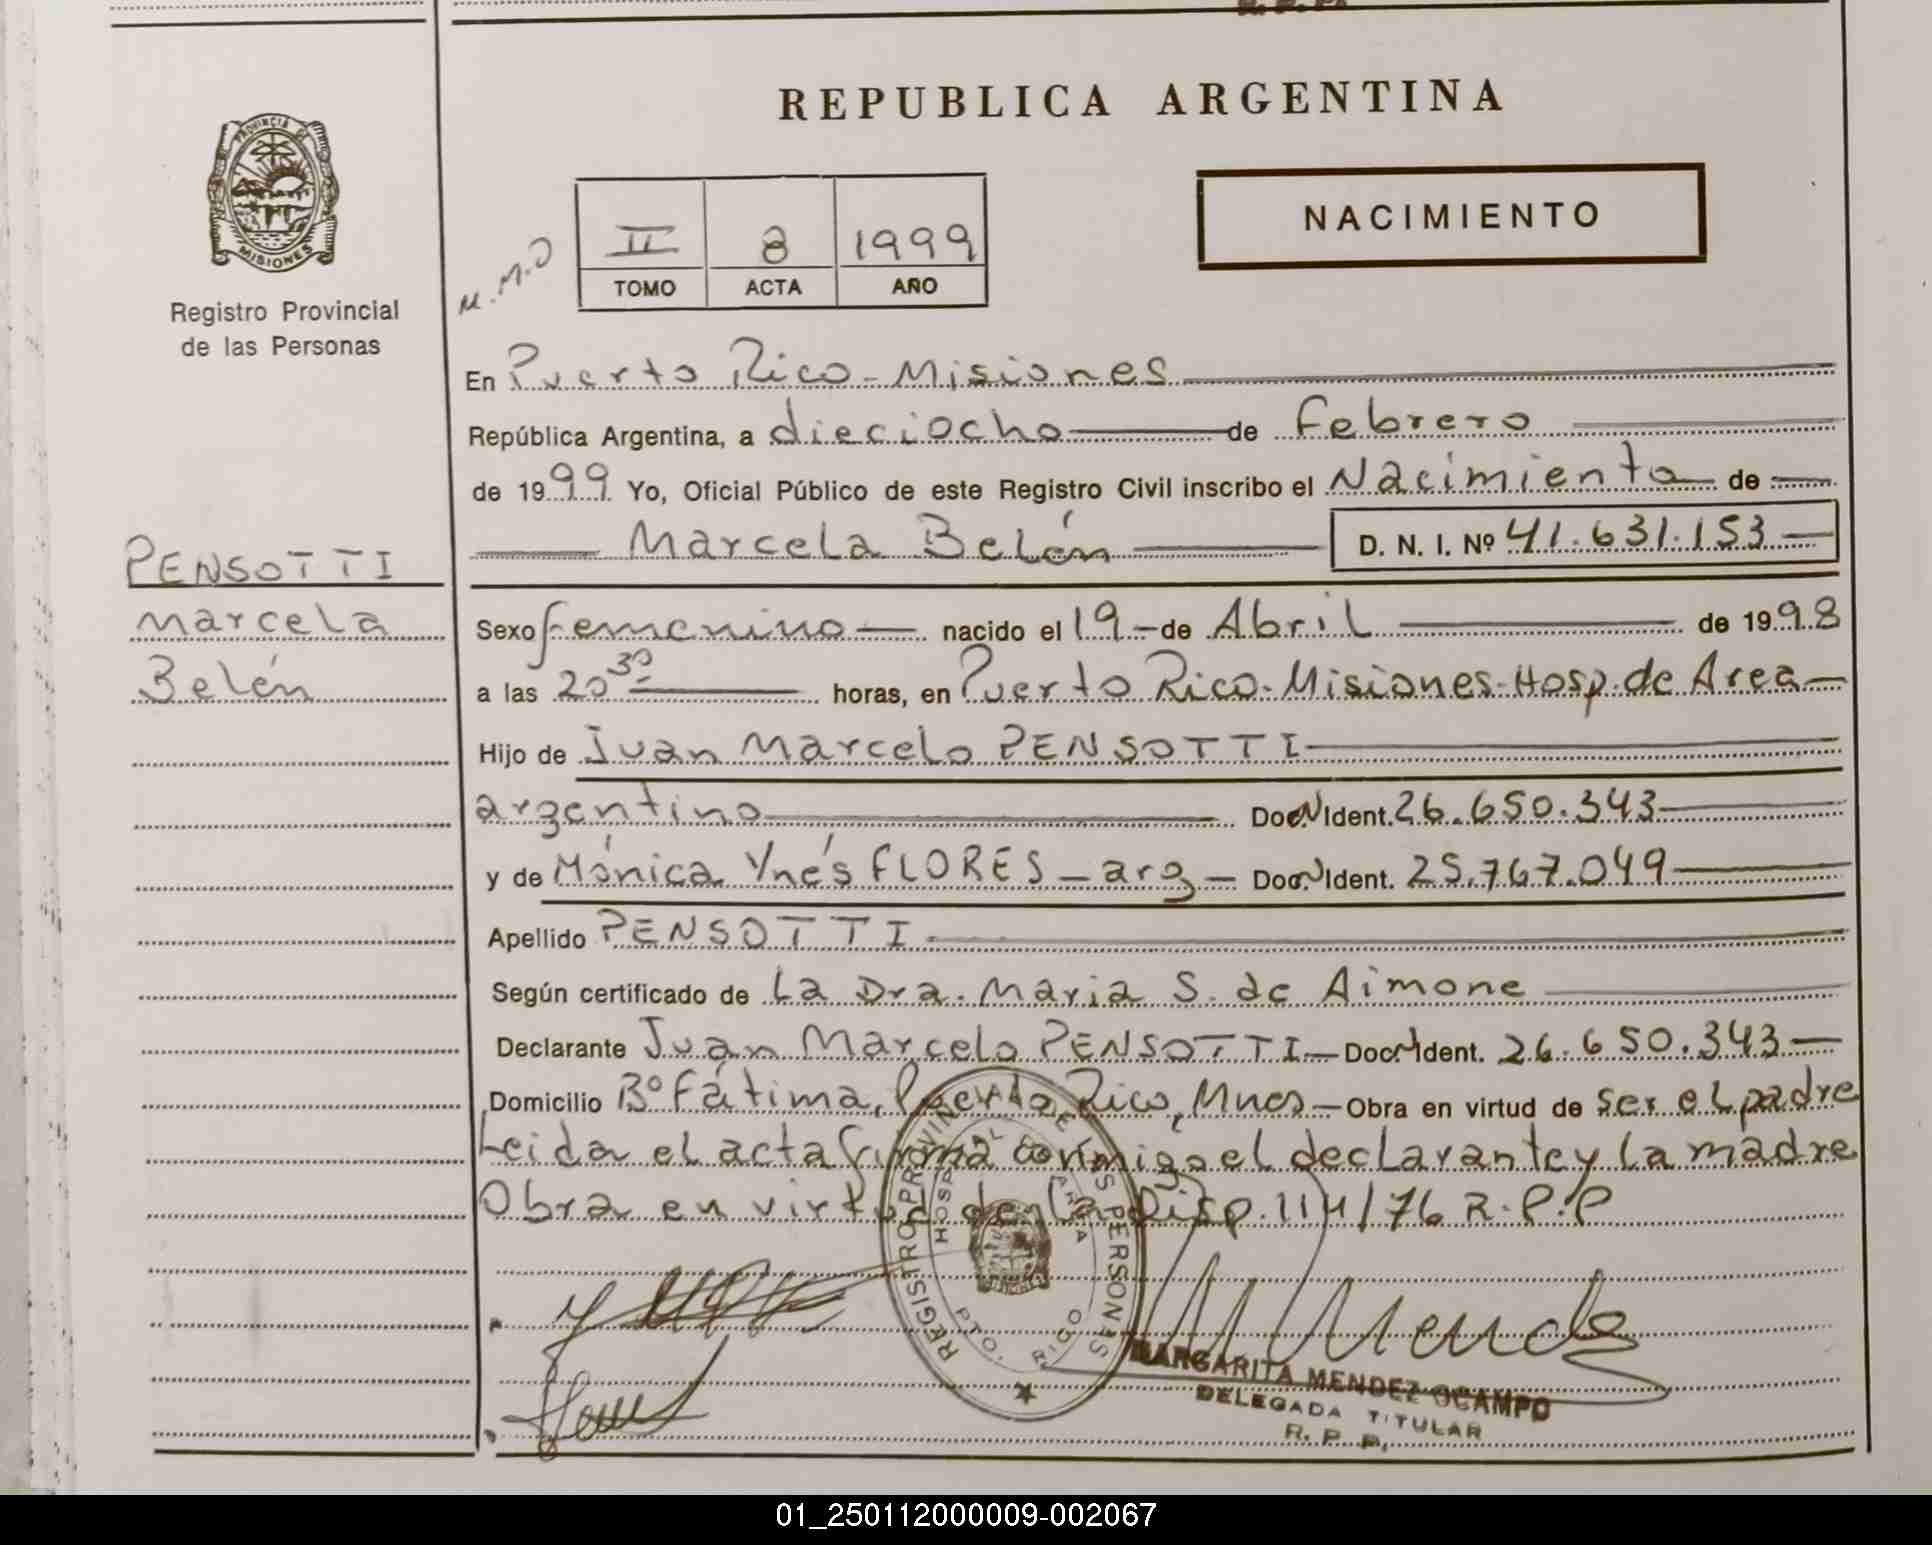 REPUBLICA ARGENTINA
PROVINCIA DE
MISIONES
Registro Provincial
de las Personas
NACIMIENTO
M.M.O
II 8 1999
TOMO ACTA AÑO
En Puerto Rico - Misiones
República Argentina, a dieciocho de Febrero
de 1999 Yo, Oficial Público de este Registro Civil inscribo el Nacimiento de
Marcela Belén D. N. I. Nº 41.631.153
PENSOTTI
Marcela
Belén
Sexo femenino nacido el 19 de Abril de 1998
a las 20 30 horas, en Puerto Rico - Misiones - Hosp. de Area
Hijo de Juan Marcelo PENSOTTI
argentino Doc. N Ident. 26.650.343
y de Mónica Ynés FLORES - arg - Doc. N Ident. 25.767.049
Apellido PENSOTTI
Según certificado de La Dra. Maria S. de Aimone
Declarante Juan Marcelo PENSOTTI Doc. N Ident. 26.650.343
Domicilio Bº Fátima, Puerto Rico, Mnes Obra en virtud de ser el padre
Leida el acta firma conmigo el declarante y la madre
Obra en virtud de la Disp. 114/76 R.P.P
REGISTRO PROVINCIAL DE LAS PERSONAS
HOSPITAL DE AREA
PTO. RICO
M Mendez
MARGARITA MENDEZ OCAMPO
DELEGADA TITULAR
R. P. P.
01_250112000009-002067